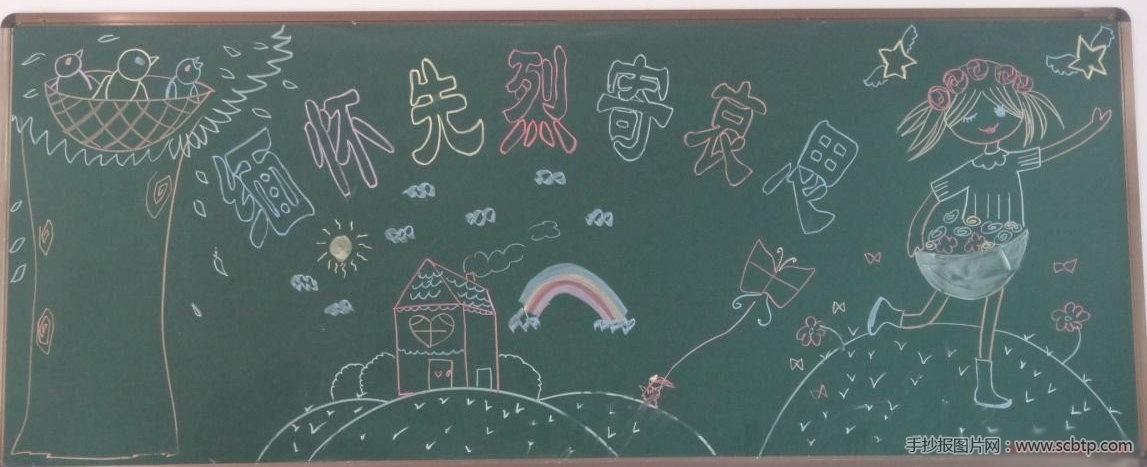 缅怀先烈寄哀思
手抄报图片网：www.scbtp.com